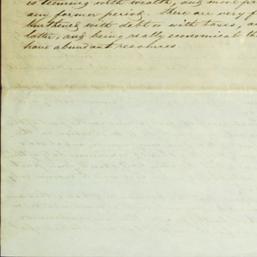 is teeming with wealth, and most pa
any former period. There are very f
burthened with debt or with taxes, an
latter, and being really economical th
have abundant resources.